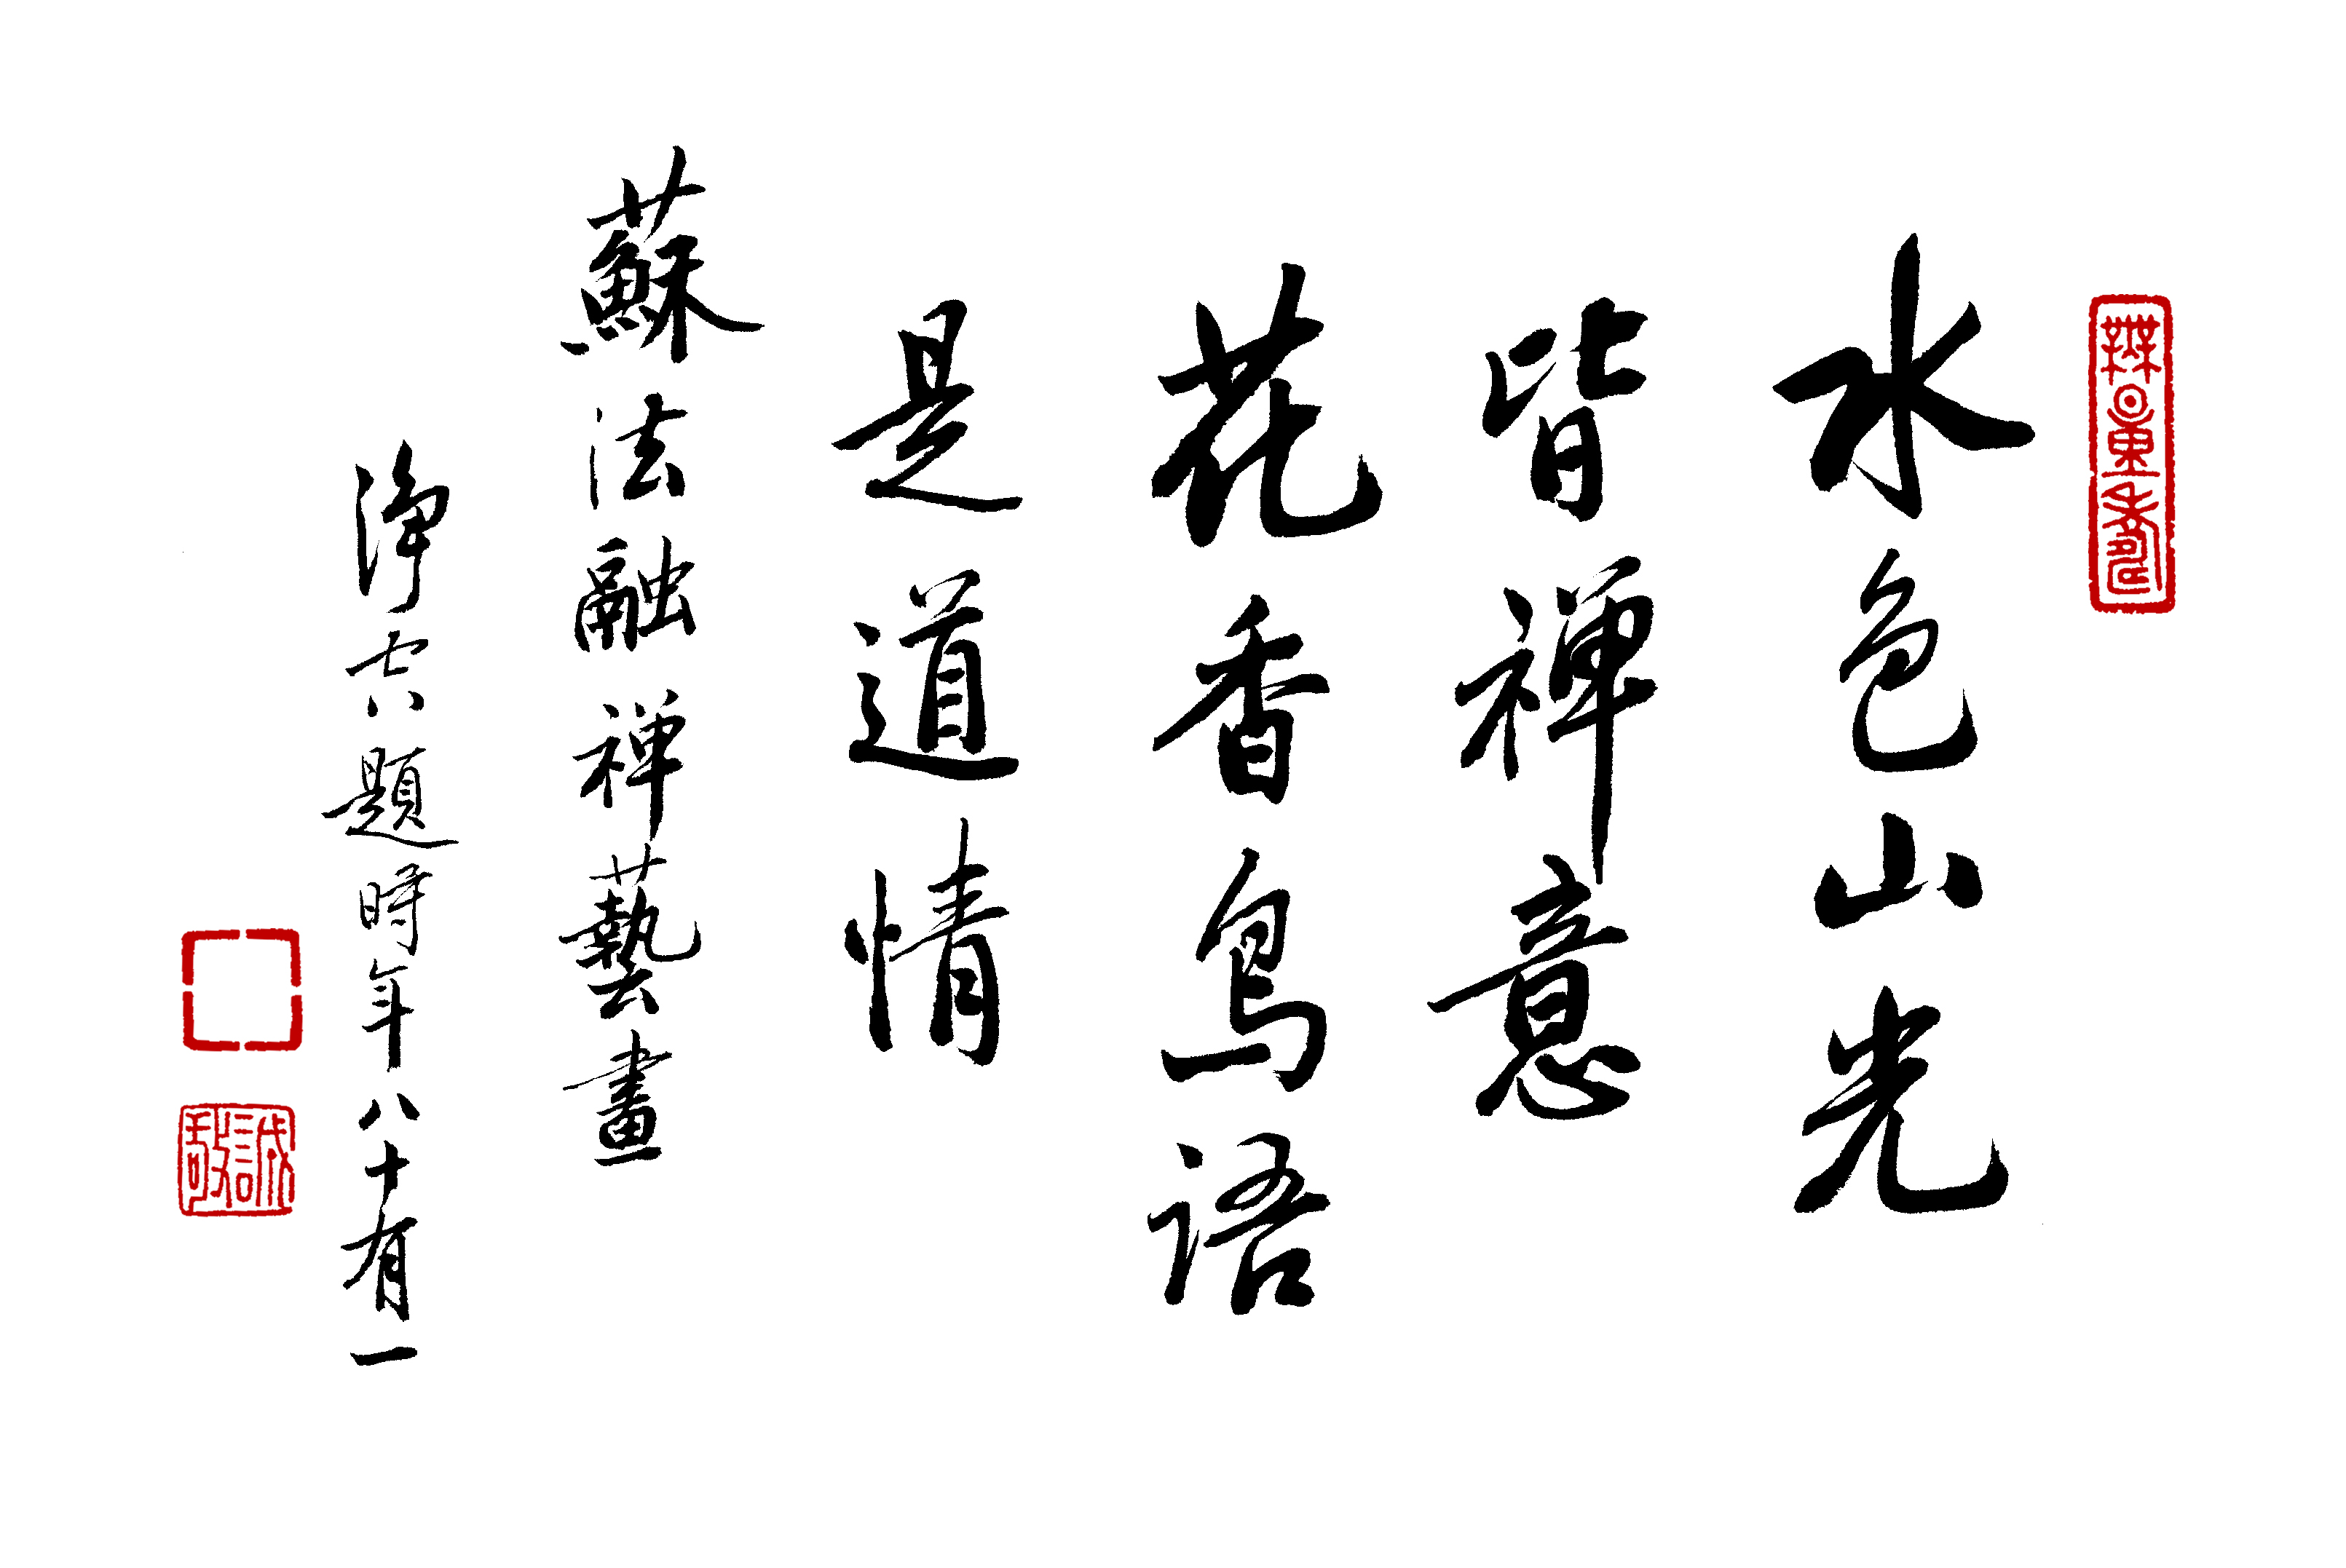 無量壽
水色山光
皆禅意
花香鸟语
是道情
蘇法融禅藝畫
淨空題時年八十有一
誠敬